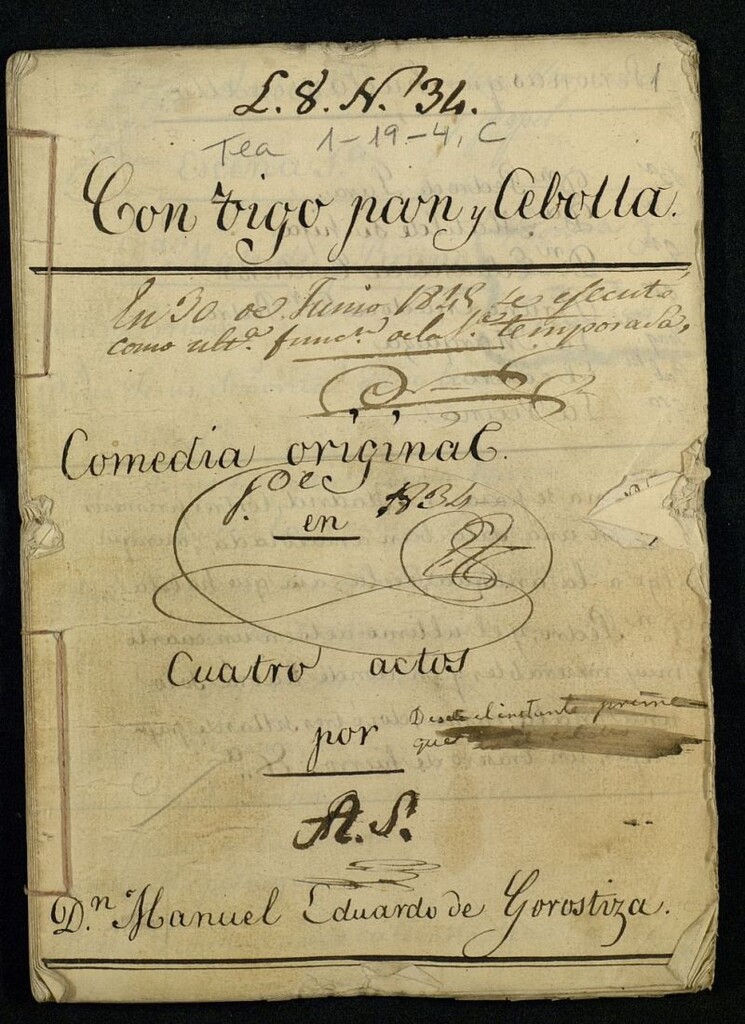 L. 8. N. 34.
Tea 1-19-4, C
Contigo pan y Cebolla.
En 30 de Junio 1845, se efecuto
como ult.ª func.n de la 1.ª temporada,
Comedia original.
en 1834
Cuatro actos
por
Desde el instante
que
A. S.
D.n Manuel Eduardo de Gorostiza.